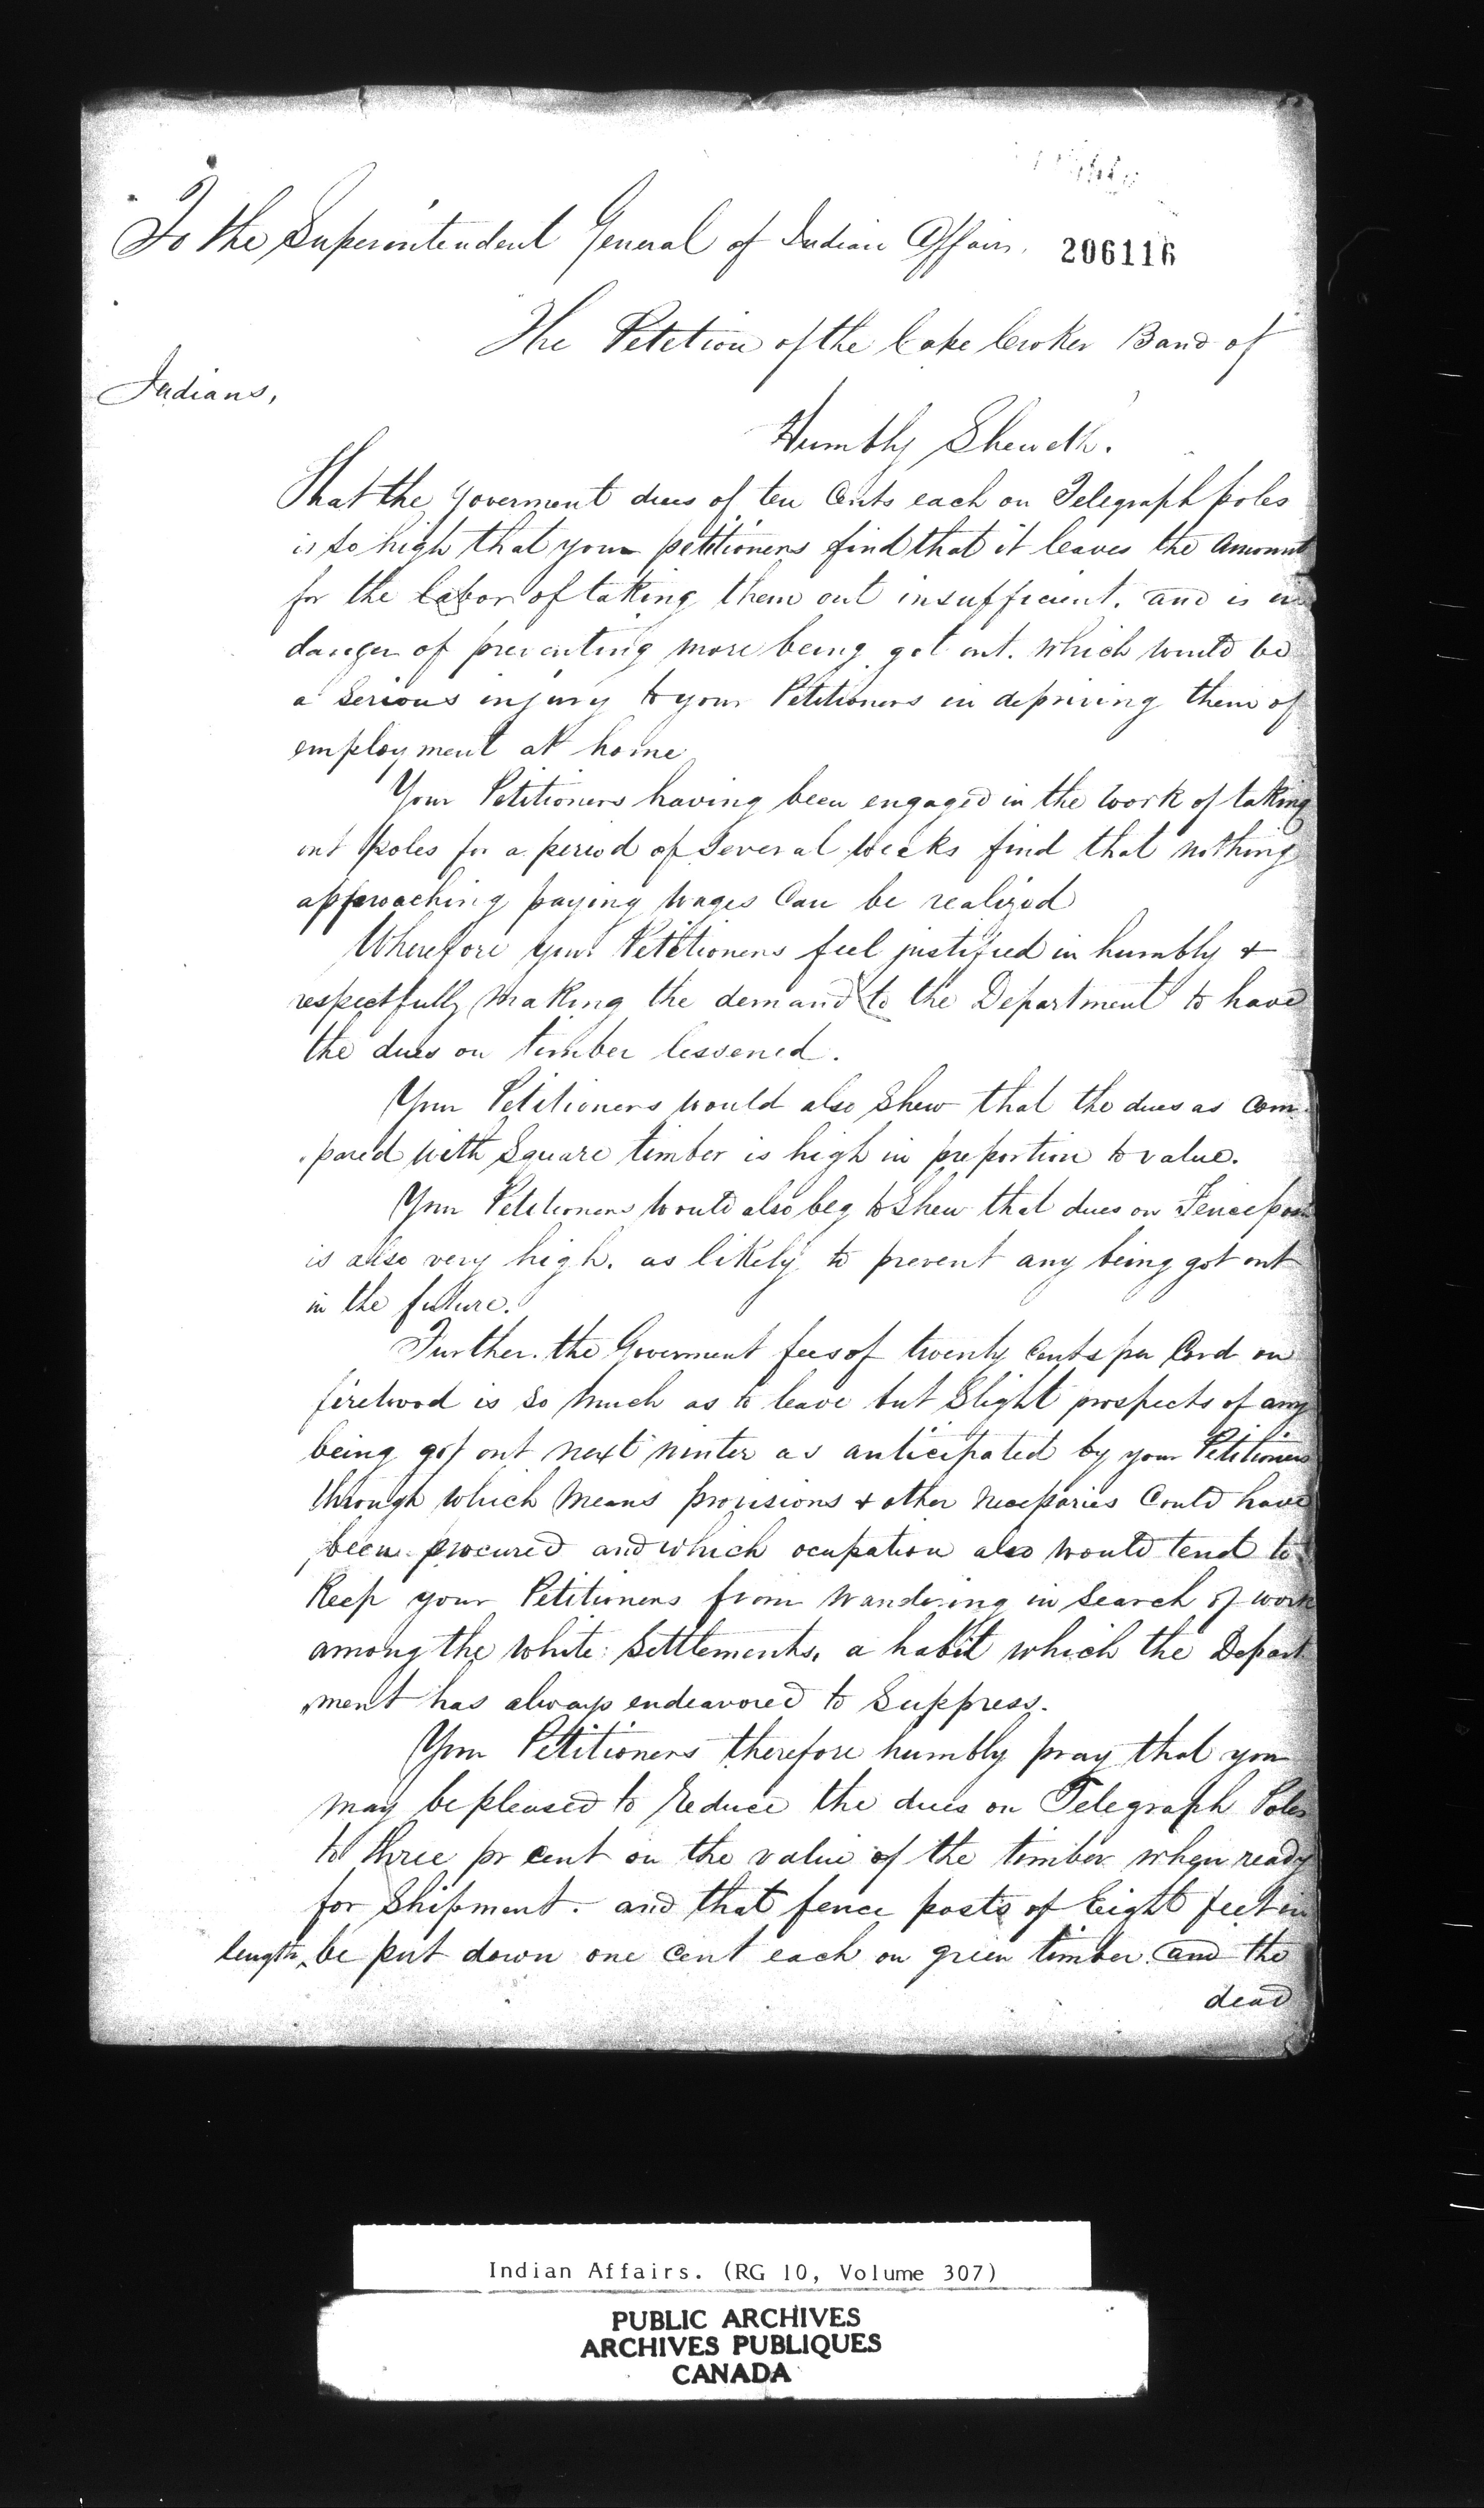 To the Superintendent General of Indian Affairs. 206116
The Petetion of the Cape Croker Band of
Indians,
Humbly Sheweth.
That the Goverment dues of ten Cents each on Telegraph poles
is so high that your petitioners find that it leaves the amount
for the labor of taking them out insufficient. and is in
danger of preventing more being got out. which would be
a serious injury to your Petitioners in depriving them of
employment at home
Your Petitioners having been engaged in the work of taking
out poles for a period of several weeks find that nothing
approaching paying wages can be realized
Wherefore your Petitioners feel justified in humbly &
respectfully making the demand to the Department to have
the dues on timber lessened.
Your Petitioners would also shew that the dues as com
pared with Square timber is high in preportion to value.
Your Petitioners would also beg to shew that dues on Fence posts
is also very high. as likely to prevent any being got out
in the future.
Further. the Goverment fees of twenty Cents per Cord on
firewood is so much as to leave but slight prospects of any
being got out next winter as anticipated by your Petitioners
through which means provisions & other necessaries could have
been procured and which ocupation also would tend to
keep your Petitioners from wandering in search of work
among the white Settlements, a habit which the Depart
"ment has always endeavored to suppress.
Your Petitioners therefore humbly pray that you
may be pleased to reduce the dues on Telegraph Poles
to three pr cent on the value of the timber when ready
for Shipment. and that fence posts of Eight feet in
length, be put down one cent each on green timber and the
dead
Indian Affairs. (RG 10, Volume 307)
PUBLIC ARCHIVES
ARCHIVES PUBLIQUES
CANADA